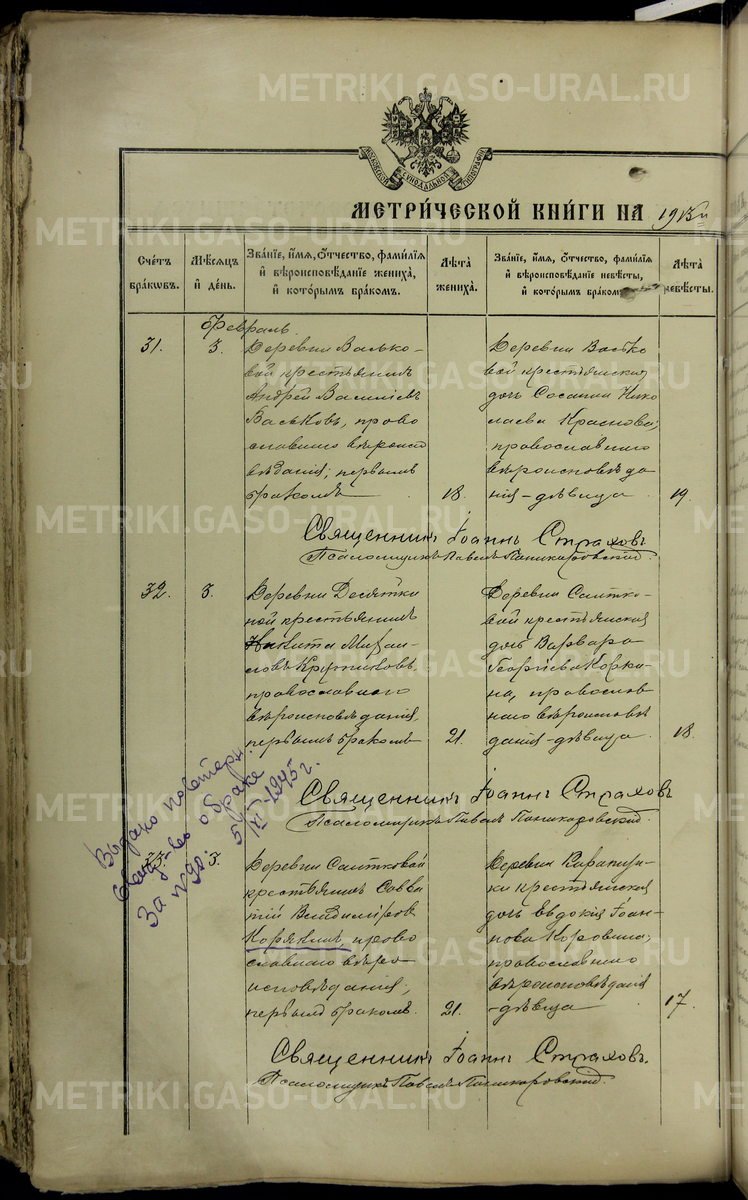 METRIKI.GASO-URAL.RU
МОСКОВСКОЙ СѴНОДАЛЬНОЙ ТИПОГРАФІИ
МЕТРИ́ЧЕСКОЙ КНИ́ГИ НА 1915
Сче́тъ бра́кѡвъ.
Мѣ́сяцъ и҆ де́нь.
Зва́нїе, и҆́мѧ, ѻ҆́тчество, фами́лїѧ и҆ вѣроисповѣ́данїе жениха̀, и҆ кото́рымъ бра́комъ.
Лѣ́та жениха̀.
Зва́нїе, и҆́мѧ, ѻ҆́тчество, фами́лїѧ и҆ вѣроисповѣ́данїе невѣ́сты, и҆ кото́рымъ бра́комъ
Лѣ́та невѣ́сты.
Февраль.
31.
3.
Деревни Валько-
вой крестьянинъ
Андрей Василіевъ
Васьковъ, право
славнаго вѣроисп
вѣданія, первымъ
бракомъ
18.
Деревни Валько
вой крестьянская
дочь
Нико
лаева Краснова;
православнаго
вѣроисповѣда
нія - дѣвица
19.
Священникъ Іоаннъ Страховъ
Псаломщикъ Павелъ Паникаровскій.
32.
3.
Деревни Десятки
ной крестьянинъ
Никита Михаи-
ловъ Крутиковъ,
православнаго
вѣроисповѣданія,
первымъ бракомъ
21.
Деревни Саитко-
вой крестьянская
дочь Варвара
Георгіева Корки-
на, православ
наго вѣроисповѣ
данія - дѣвица
18.
Священникъ Іоаннъ Страховъ
Псаломщикъ Павелъ Паникаровскій.
Выдано повторн.
свид-во о браке
За №90. 5/VI-1945 г.
33.
3.
Деревни Саитковой
крестьянинъ Савва
тій Владиміров
Корякинъ, право
славнаго вѣро
исповѣданія,
первымъ бракомъ.
21.
Деревни
ки крестьянская
дочь Евдокія Іоан-
нова Коровина;
православнаго
вѣроисповѣданія
- дѣвица
17.
Священникъ Іоаннъ Страховъ.
Псаломщикъ Павелъ Паникаровскій.